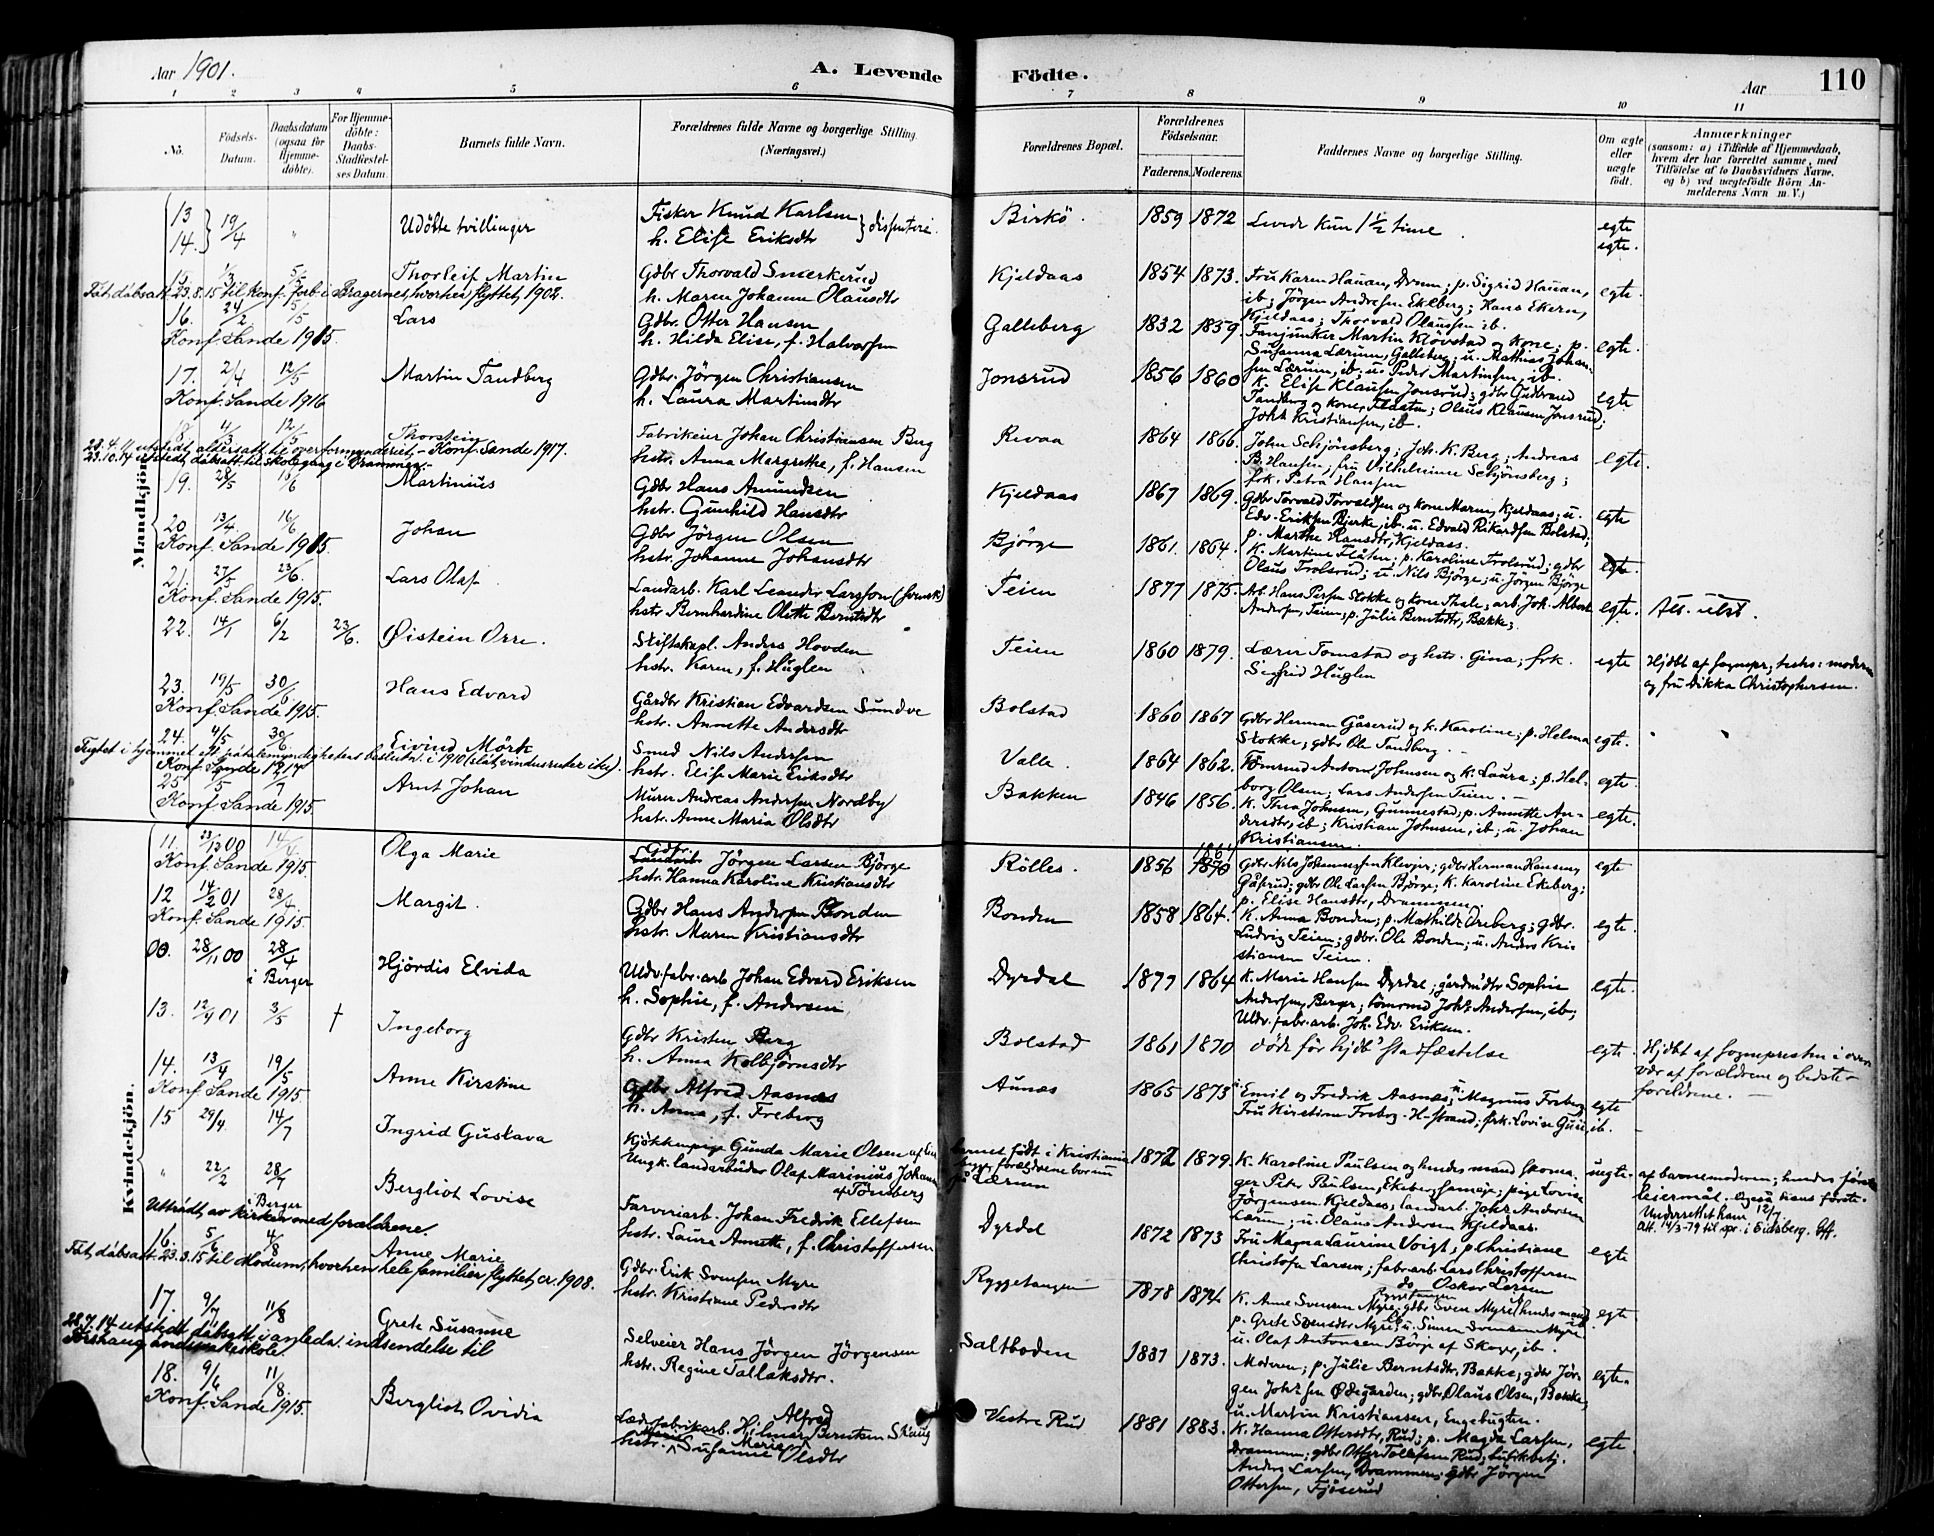 Aar 1901.
A. Levende
Födte.
Aar
110
1 2 3 4 5 6 7 8 9 10 11
No.
Födsels-
Datum.
Daabsdatum
(ogsaa for
Hjemme-
döbte).
For Hjemme-
döbte:
Daabs-
Stadfæstel-
ses Datum.
Barnets fulde Navn.
Forældrenes fulde Navne og borgerlige Stilling.
(Næringsvei.)
Forældrenes Bopæl.
Forældrenes
Födselsaar.
Faderens. Moderens.
Faddernes Navne og borgerlige Stilling.
Om ægte
eller
uægte
födt.
Anmærkninger
(saasom: a) i Tilfælde af Hjemmedaab,
hvem der har forrettet samme, med
Tilföielse af to Daabsvidners Navne,
og b) ved uægtefödte Börn An-
melderens Navn m. V.)
Mandkjön.
13
14. 19/4 Udöbte tvillinger
Fisker Knud Karlsen
h. Elise Eriksdtr
Birkö. 1859 1872 Levede kun 1 1/2 time egte
egte.
15. Thorleif Martin
Gdbr Thorvald Smerkerud
h. Maren Johanne Olausdtr
Kjeldaas 1854 1873. Fru Karen Hanan, Drmn; p. Sigrid Hanan,
ib; Jörgen Andresen Ekeberg; Hans Ekern,
Kjeldaas; Thorvald Olaussen ib. egte.
Fåt dåbsatt. 23.8.15 til konf. forb. i Bragernes, hvorhen flyttet 1902.
16. 24/2 Lars
Gdbr. Otter Hansen
h. Hilda Elise, f. Halvorsen
Galleberg 1832 1859. Fanjunker Martin Klövstad og kone; p.
Susanna Lærum, Galleberg; u. Mathias Johan-
sen Lærum, ib; u. Peder Martinsen, ib. egte.
Konf. Sande 1915.
17. 2/4 12/5 Martin Tandberg
Gdbr. Jörgen Christiansen
h. Laura Martinsdtr
Jonsrud 1856 1860 k. Elise Klausen Jonsrud; gdbr Gudbrand
Tandberg og kone, Flaaten; Olaus Klausen Jonsrud;
Joh: Kristiansen, ib. egte
Konf. Sande 1916
18. 4/5 12/5 Thorstein
Fabrikeier Johan Christiansen Berg
hstr. Anna Margrethe, f. Hansen
Revaa 1864 1866. John Schjönsberg; Joh. K. Berg; Andreas
B. Hansen; fru Vilhelmine Schjönsberg;
frk. Petra Hansen egte.
28.4.11 utstedt aldersatt. til overformynderiet. - Konf. Sande 1917.
23.10.14 utstedt dåbsatt. til skolegang i Drammen.-
19. 16/6 Martinius
Gdbr Hans Amundsen
hstr. Gunhild Hansdtr
Kjeldaas 1867 1869. Gdbr Torvald Torvaldsen og kone Maren, Kjeldaas; u.
Edv. Eriksen Bjerke, ib. u. Edvald Rikardsen Bolstad;
p. Marthe Hansdtr, Kjeldaas. egte
20 13/4. 16/6 Johan
Gdbr Jörgen Olsen
hstr. Johanne Johansdtr
Björge 1861. 1864. K. Martine Flåten; p. Karoline Trolsrud; gdbr
Olaus Trolsrud; u. Nils Björge; u. Jörgen Björge egte.
Konf. Sande 1915
21. 27/5 23/6. Lars Olaf.
Landarb. Karl Leander Larsson (svensk)
hstr. Bernhardine Olette Berntsdtr
Teien 1877 1875. Arb. Hans Persen Stokke og kone Thale; arb Joh. Albert
Andersen, Teien; p. Julie Berntsdtr, Bakke; egte. Att. utst.
Konf. Sande 1915.
22. 14/1 6/2 23/6. Øistein Orre.
Stiftskapl. Anders Hovden
hstr. Karen, f. Huglen
Teien 1860 1879. Lærer Tomstad og hstr. Gina; frk.
Sigfrid Huglen egte Hjdbt af sognepr; testes: moderen
og fru Dikka Christophersen.
23. 19/5 30/6 Hans Edvard
Gårdbr Kristian Edvardsen Sundve
hstr. Annette Andersdtr
Bolstad 1860 1867 Gdbr Herman Gåserud og k. Karoline; p. Helma
Stokke; gdbr Ole Tandberg. egte.
Konf. Sande 1915.
24. 4/5 30/6. Eivind Mörk
Smed Nils Andersen
hstr. Elise Marie Eriksdtr
Valle. 1864 1862. Tömrmd Anton Johnsen og k. Laura; p. Hal-
borg Olsen; Lars Andersen Teien. egte
Konf. Sande 1914
25 Arnt Johan
Murer Andreas Andersen Nordby
hstr. Anne Maria Olsdtr
Bakken 1846 1856. K. Thea Johnsen, Gunnestad; p. Annette An-
dersdtr, ib; Kristian Johnsen, ib; u. Johan
Kristiansen. egte.
Konf. Sande 1915.
Kvindekjön.
11. Olga Marie
Gdbr. Jörgen Larsen Björge
hstr. Hanna Karoline Kristiansdtr
Rölles. 1856 1870 Gdbr Nils Johannessen Klevjer; gdbr Herman Hansen,
Gåsrud; gdbr Ole Larsen Björge; K. Karoline Ekeberg;
p. Elise Hansdtr, Drammen. egte
Konf. Sande 1915.
12 14/2 01 28/4 Margit.
Gdbr Hans Andersen Bonden
hstr. Maren Kristiansdtr
Bonden 1858 1864. K. Anna Bonden; p. Mathilde Areberg; gdbr.
Ludvig Teien; gdbr. Ole Bonden; u. Anders Kris-
tiansen Teien. egte.
Konf. Sande 1915.
00. 28/11 00 28/4 i Berger Hjördis Elvida
Uldv.fabr.arb Johan Edvard Eriksen
h. Sophie, f. Andersen
Dyrdal 1877 1864 K. Marie Hansen Dyrdal; gårdmdtr Sophie
Andersen, Berger; tömrmd Joh: Andersen, ib;
Uldv.fabr.arb. Joh. Edv. Eriksen. egte.
13. 12/4 01 3/5 † Ingeborg
Gdbr Kristen Berg
h. Anna Kolbjörnsdtr
Bolstad 1861 1870 döde för hjdb³ stadfæstelse egte Hjdbt af sognepresten i over-
vær af forældrene og bedste-
forældrene.
14. 13/4 19/5 Anne Kirstine
Gdbr Alfred Aasnæs
h. Anna, f. Freberg
Aunæs 1865 1873 Emil og Fredrik Aasnæs; u. Magnus Freberg;
Fru Kirstine Freberg H-strand; frk. Lovise Guse, ib. egte
Konf. Sande 1915
15 29/4. 14/7 Ingrid Gustava
Kjökkenpige Gunda Marie Olsen
Ungk. landarbeider Olaf Marinius Johansen
Tönsberg
Barnet födt i Kristiania
Lærum 1872 1879. K. Karoline Paulsen og hendes mand skoma-
ger Peter Paulsen, Ekeberg sameje; pige Lovise
Jörgensen, Kjeldaas; landarb. Joh: Andersen
Lærum; u. Olaus Andersen Kjeldaas. uegte. af barnemoderen; hendes første
leiermål. Også hans første.
Underrettet ham 12/7
Att. 14/3-79 til spr. i Eidsberg.
" 22/2 28/7 i Berger Bergliot Lovise
Farveriarb. Johan Fredrik Ellefsen
hstr. Laura Annette, f. Christoffersen
Dyrdal 1872 1873 Fru Magna Laurine Voigt; p Christiane
Christofa Larsen; fabr.arb. Lars Christoffersen
do Oskar Larsen egte
Uttrådt av kirken med forældrene.
16. 5/6 4/8 Anne Marie
Gdbr. Erik Svensen Myre
hstr. Kristiane Pedersdtr
Ryggetangen 1878 1874. K. Anne Svensen Myre; gdbr Sven Myre (hendes mand)
p. Grete Svensdtr Myre; u. Simen Svensen Myre
u. Olaf Antonsen Börje af Skoger, ib. egte
Fåt dåbsatt. 23.3.15 til Modum, hvorhen hele familien flyttet, cr. 1908.
17. 9/7 11/8 Grete Susanne
Selveier Hans Jörgen Jörgensen
hstr. Regine Tallaksdtr.
Saltboden 1837 1873. Moderen; p. Julie Berntsdtr, Bakke; gdbr Jör-
gen Joh:sen Ødegården; gdbr Olaus Olsen, Bakke;
u. Martin Kristiansen, Engebugten. egte.
28.7.14 utstedt dåbsatt. i anledn. indsendelse til
18. 9/6 11/8. Bergliot Ovidia
Læderfabrikarb. Hilmar Alfred Berntsen Skaug
hstr. Susanne Marie Olsdtr
Vestre Rud 1881 1883. K. Hanna Ottersdtr, Rud; p. Magda Larsen,
Drammen; gdbr Otter Tollefsen Rud; butikbetj.
Anders Larsen, Drammen; gdbr Jörgen
Ottersen, Fjöserud egte.
Konf. Sande 1915.